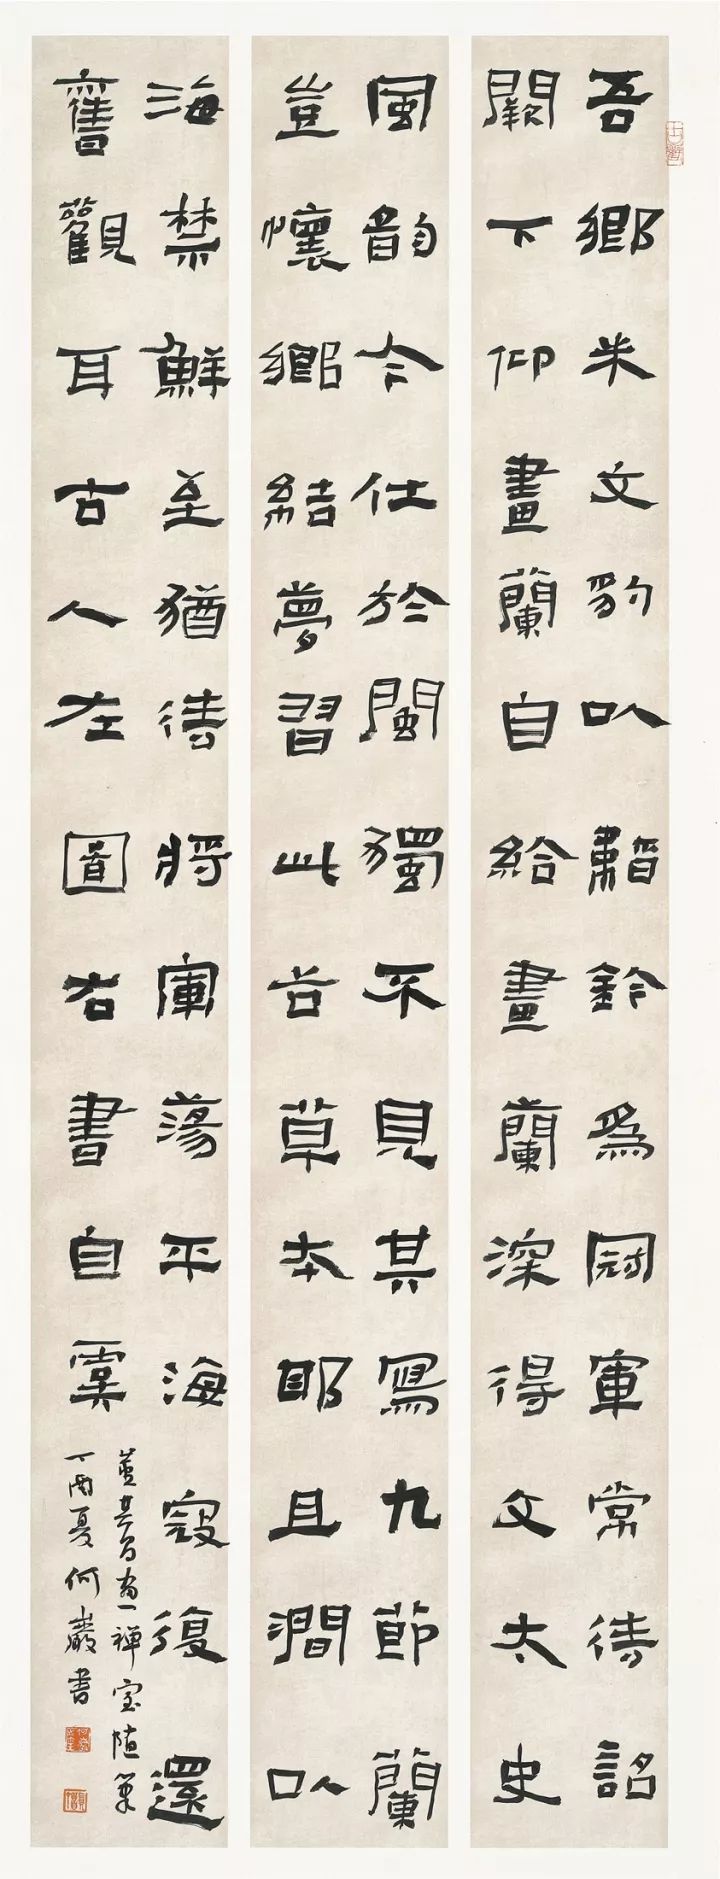 吾鄉朱文豹以韜鈐為冠軍常待詔
闕下仰畫蘭自給畫蘭深得文太史
風韵今仕於閩獨不見其寫九節蘭
豈懷鄉結夢習此谷草本耶且澗以
海禁鮮至猶待將軍蕩平海寇復還
舊觀耳古人左圖右書自虞
董其昌画禪室随筆
丁酉夏何巖書